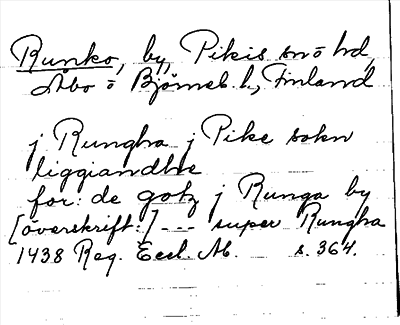 Runko, by, Pikis sn o hd,
Åbo o Björneb. l., Finland
j Rungha j Pike sokn
liggiandhe
for: de gotz j Runga by
[överskrift:] --- super Rungha
1438 Reg. Eccl. Ab. s. 364.